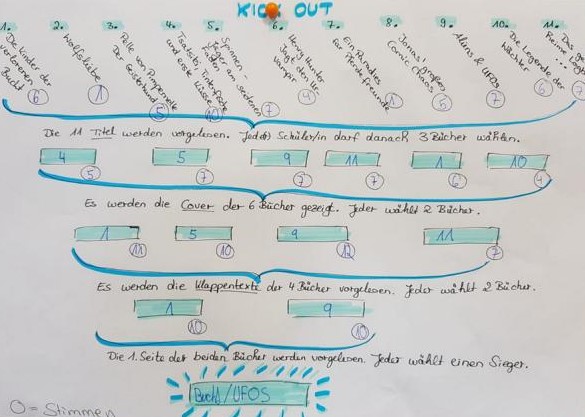 KICK OUT
1. 2. 3. 4. 5. 6. 7. 8. 9. 10. 11.
Die Kinder der
verlorenen
Bucht
6
Wolfsliebe
1
Der Geisterhund
5
und erste Küsse
10
Spinnen-
Jäger am seidenen
Faden
7
Henry Hunter
Jagt den
Vampir
4
Ein Paradies
für Pferdefreunde
1
Jonas' großes
Comic Chaos
5
Aliens & UFOs
7
Die Legende der
Wächter
6
7
Die 11 Titel werden vorgelesen. Jede(r) Schüler/in darf danach 3 Bücher wählen.
4 5 9 11 1 10
5 7 7 7 6 4
Es werden die Cover der 6 Bücher gezeigt. Jeder wählt 2 Bücher.
1 5 9 11
11 10 12 7
Es werden die Klappentexte der 4 Bücher vorgelesen. Jeder wählt 2 Bücher.
1 9
10 10
Die 1. Seite der beiden Bücher werden vorgelesen. Jeder wählt einen Sieger.
Bucht/UFOS
O = Stimmen